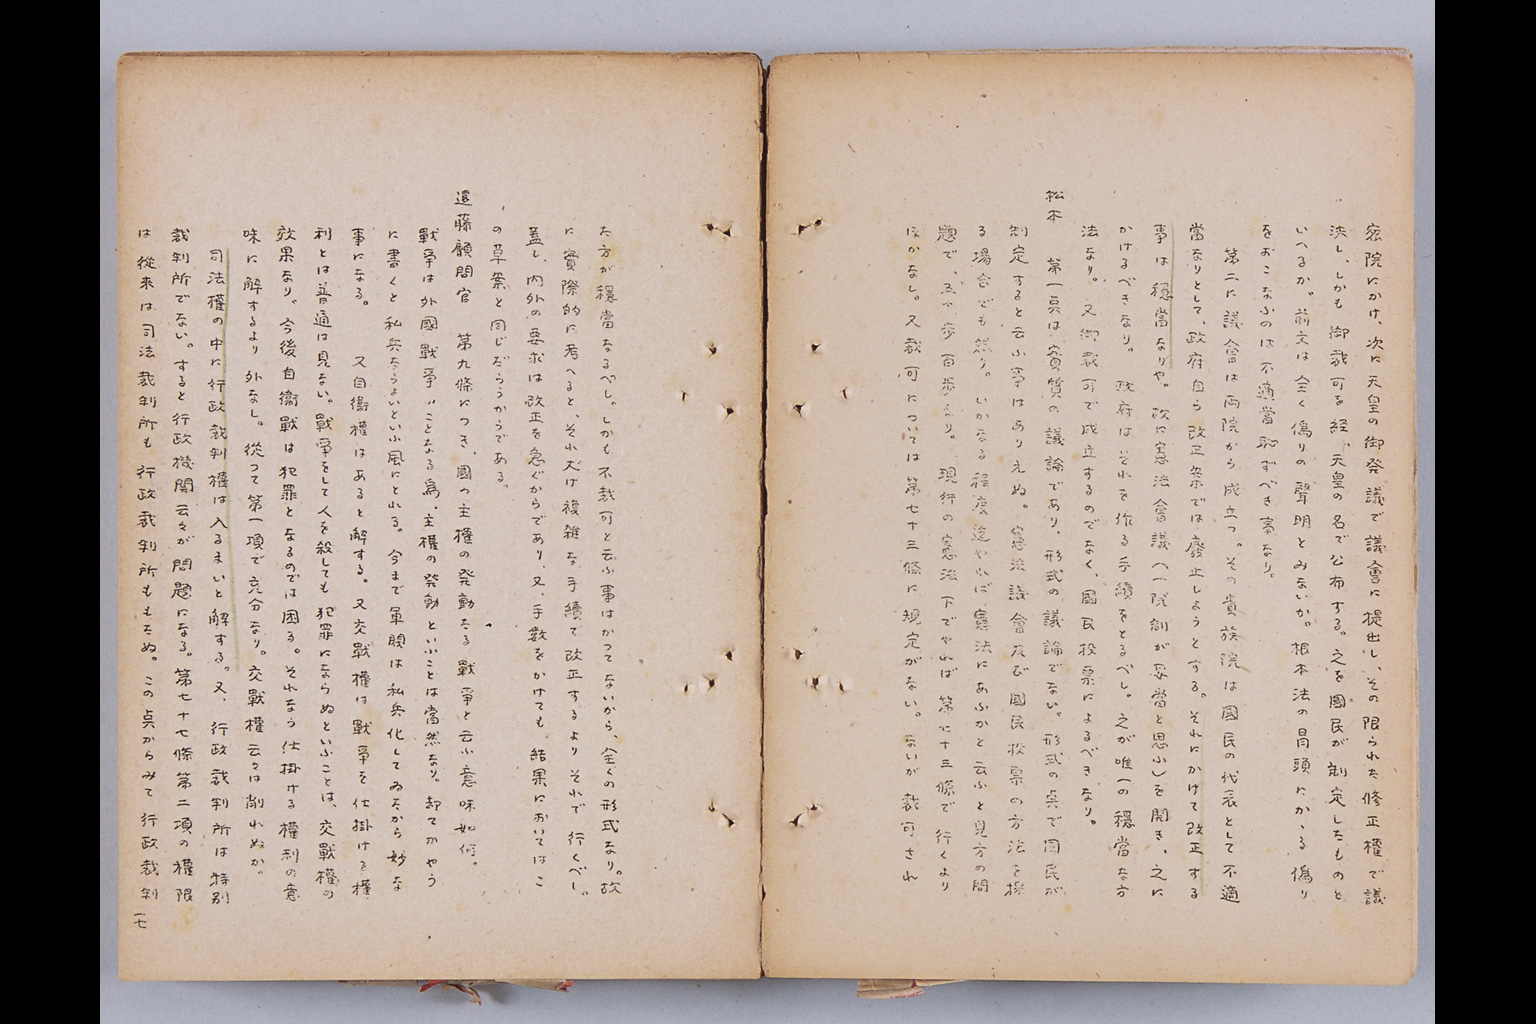 密院にかけ、次に天皇の御発議で議會に提出し、その限られた修正權で議
決し、しかも御裁可を経、天皇の名で公布する。之を國民が制定したものと
いへるか。前文は全く偽りの聲明とみないか。根本法の冐頭にかゝる偽り
をおこなふのは不適當恥ずべき事なり。
第二に議會は両院から成立つ。その貴族院は國民の代表として不適
當なりとして、政府自ら改正案では廢止しようとする。それにかけて改正する
事は穏當なりや。故に憲法會議(一院制が妥當と思ふ)を開き、之に
かけるべきなり。政府はそれを作る手續をとるべし。之が唯一の穏當な方
法なり。又御裁可で成立するのでなく、國民投票によるべきなり。
松本 第一点は實質の議論であり、形式の議論でない。形式の点で國民が
制定すると云ふ事はありえぬ。憲法議會及び國民投票の方法を採
る場合でも然り。いかなる程度迄やれば憲法にあふかと云ふと見方の問
題で、五十歩百歩なり。現行の憲法下でやれば第七十三條で行くより
ほかなし。又裁可については第七十三條に規定がない。ないが裁可され
た方が穏當なるべし。しかも不裁可と云ふ事はかつてないから、全くの形式なり。故
に實際的に考へると、それだけ複雑な手續で改正するよりそれで行くべし。
蓋し、内外の要求は改正を急ぐからであり、又、手数をかけても、結果においてはこ
の草案と同じだらうからである。
遠藤顧問官 第九條につき、國の主權の発動たる戰爭と云ふ意味如何。
戰爭は外國戰爭〃ことなる為、主權の発動といふことは當然なり。却てかやう
に書くと私兵ならよいといふ風にとれる。今まで軍閥は私兵化してゐたから妙な
事になる。 又自衞權はあると解する。又交戰權は戰爭を仕掛ける權
利とは普通は見ない。戰爭をして人を殺しても犯罪にならぬといふことは、交戰權の
效果なり。今後自衞戰は犯罪となるのでは困る。それなら仕掛ける權利の意
味に解するより外なし。從つて第一項で充分なり。交戰權云々は削れぬか。
司法權の中に行政裁判權は入るまいと解する。又、行政裁判所は特別
裁判所でない。すると行政機関云々が問題になる。第七十七條第二項の權限
は從来は司法裁判所も行政裁判所ももたぬ。この点からみて行政裁判
一七